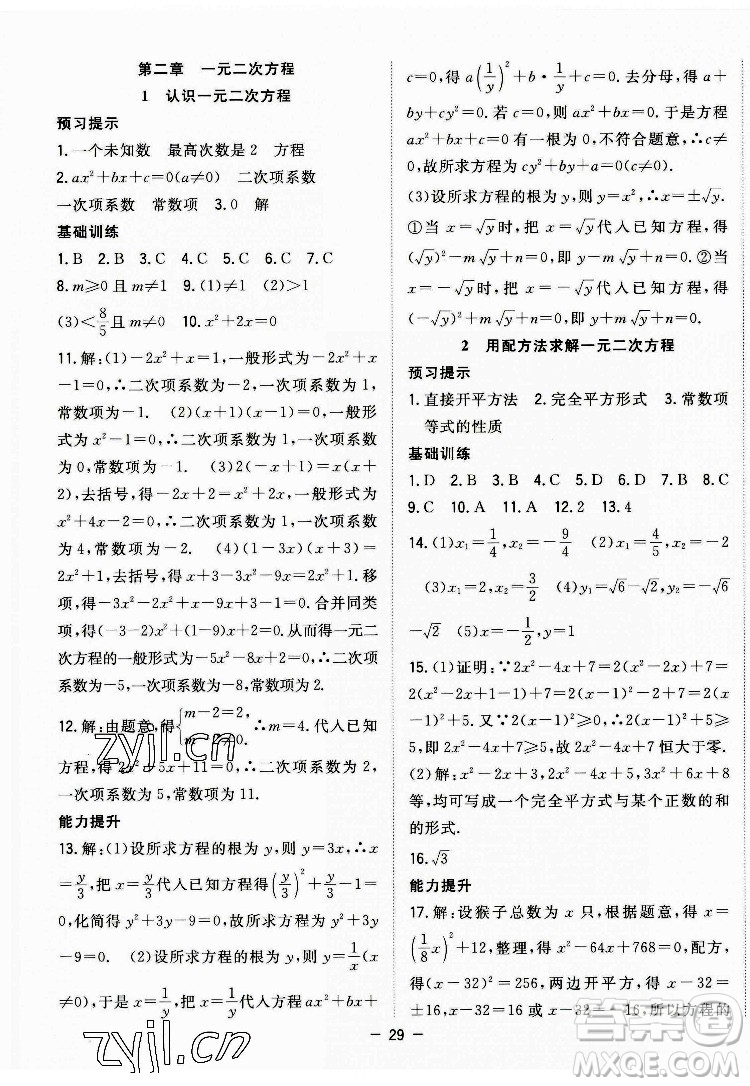 第二章　一元二次方程
1　认识一元二次方程
预习提示
1.一个未知数　最高次数是2　方程
2.ax²+bx+c=0(a≠0)　二次项系数
一次项系数　常数项　3.0　解
基础训练
1.B　2.B　3.C　4.C　5.B　6.C　7.C
8.m⩾0且m≠1　9.(1)=1　(2)>1
(3)<8/5且m≠0　10.x²+2x=0
11.解:(1)-2x²+x+1=0,一般形式为-2x²
+x+1=0,∴二次项系数为-2,一次项系数为1,
常数项为1.　(2)(x+1)(x-1)=0,一般形
式为x²-1=0,∴二次项系数为1,一次项系数
为0,常数项为-1.　(3)2(2x-1)+x²=0
+2,去括号,得4x-2+x²=0,一般形式为
x²+4x-2=0,∴二次项系数为1,一次项系数
为4,常数项为-2.　(4)(1-3x)(x+2)=
2x²+1,去括号,得x+2-3x²-6x=2x²+1.移
项,得-3x²-2x²+x-6x+2-1=0.合并同类
项,得(-3-2)x²-5x+1=0,从而得一元二
次方程的一般形式为-5x²-5x+1=0,二次项系
数为-5,一次项系数为-5,常数项为1.
12.解:由题意,得{m-2=2, m≠0. ∴m=4.代入已知
方程,得4x²+5x+11=0,∴二次项系数为4,
一次项系数为5,常数项为11.
能力提升
13.解:(1)设所求方程的根为y,则y=3x,∴x
=y/3,把x=y/3代入已知方程得(y/3)²+y/3-1=
0,化简得y²+3y-9=0,故所求方程为y²+3y
-9=0.　(2)设所求方程的根为y,则y=1/x(x
≠0),于是x=1/y(y≠0),把x=1/y代入ax²+bx+
c=0,得a(1/y)²+b·1/y+c=0;去分母,得a+
by+cy²=0.若c=0,则ax²+bx=0,于是方程
ax²+bx+c=0有一个根为0,不符合题意,∴c
≠0,故所求方程为cy²+by+a=0(c≠0).
(3)设所求方程的根为y,则y=x²,∴x=±√y.
①当x=√y时,把x=√y代入已知方程,得
(√y)²-m√y+n=0,即y-m√y+n=0.②当
x=-√y时,把x=-√y代入已知方程,得
(-√y)²-m(-√y)+n=0,即y+m√y+n=0.
2　用配方法求解一元二次方程
预习提示
1.直接开平方法　2.完全平方形式　3.常数项
等式的性质
基础训练
1.D　2.B　3.B　4.C　5.D　6.A　7.D　8.A
9.C　10.A　11.A　12.2　13.4
14.(1)x₁=1/4,x₂=-9/4　(2)x₁=4/5,x₂=-2
(3)x₁=2,x₂=3/2　(4)y₁=√6-√2,y₂=-√6
-√2　(5)x=-1/2,y=1
15.(1)证明:∵2x²-4x+7=2(x²-2x)+7=
2(x²-2x+1-1)+7=2(x-1)²-2+7=2(x-
1)²+5.又∵2(x-1)²⩾0,∴2(x-1)²+5⩾5,
即2x²-4x+7⩾5,故2x²-4x+7恒大于零.
(2)解:x²-2x+3,2x²-2x+5,3x²+6x+8
等,均可写成一个完全平方式与某个正数的和
的形式.
16.√3
能力提升
17.解:设猴子总数为x只,根据题意,得x=
(1/8x)²+12,整理,得x²-64x+768=0,配方,
得(x-32)²=256,两边开平方,得x-32=
±16,x-32=16或x-32=-16,所以方程的
29
zyjl.cn
zyjl.cn
答案圈
MXQE.COM